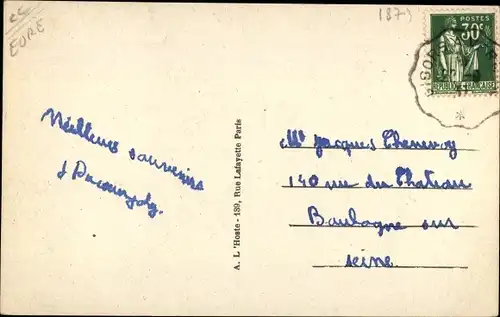 EURE
(187)
POSTES
30c
REPUBLIQUE FRANÇAISE
Meilleurs souvenirs
A. L'Hoste - 139, Rue Lafayette Paris
Mr Jacques
140 rue du Chateau
Boulogne sur
seine